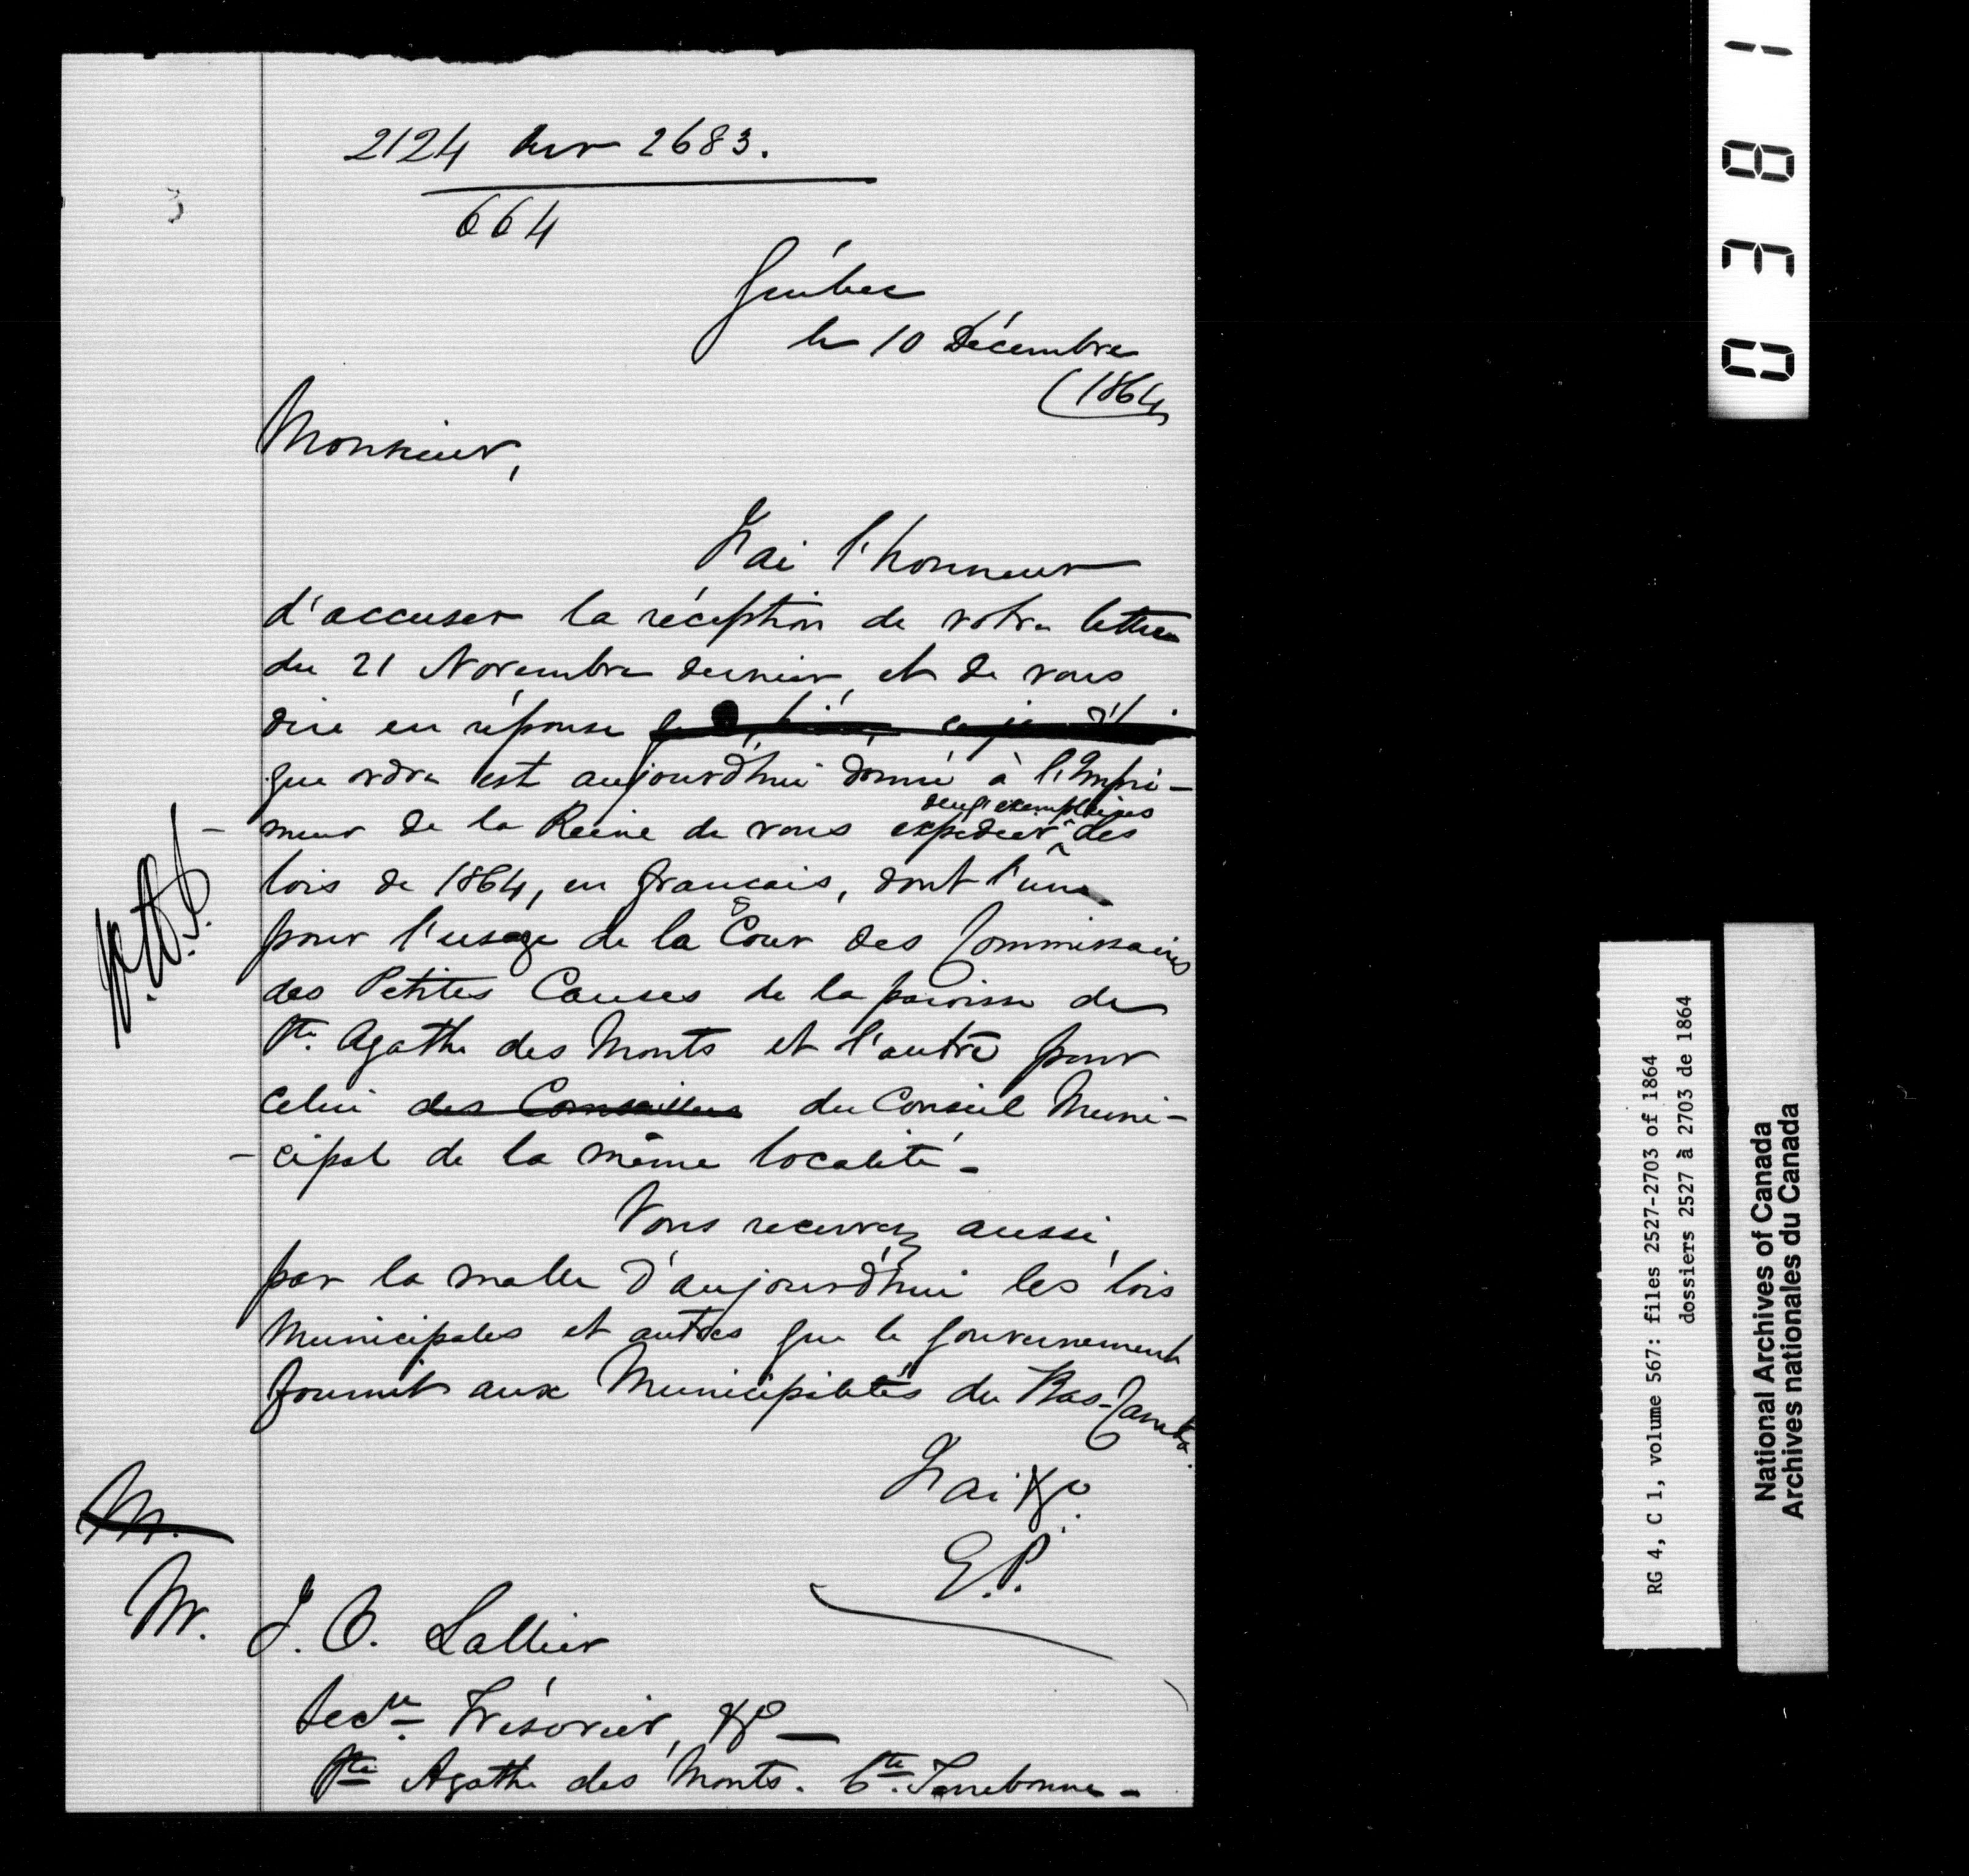 2124 sur 2683.
664
Québec
le 10 Décembre
1864
Monsieur,
J'ai l'honneur
d'accuser la réception de votre lettre
du 21 Novembre dernier, et de vous
dire en réponse
que ordre est aujourd'hui donné à l'Impri-
deux exemplaires
- meur de la Reine de vous expédier des
lois de 1864, en français, dont l'une
pour l'usage de la Cour des Commissaires
des Petites Causes de la paroisse de
Ste. Agathe des Monts et l'autre pour
celui des Conseillers du Conseil Muni-
- cipal de la même localité -
Vous recevrez aussi,
par la malle d'aujourd'hui les lois
Municipales et autres que le Gouvernement
fournit aux Municipalités du Bas-Canada.
J'ai &c.
E.P.
M.
Mr. J. O. Lallier
Secre. Trésorier, &c -
Ste Agathe des Monts. Cte. Terrebonne -
0381
RG 4, C 1, volume 567: files 2527-2703 of 1864
dossiers 2527 à 2703 de 1864
National Archives of Canada
Archives nationales du Canada